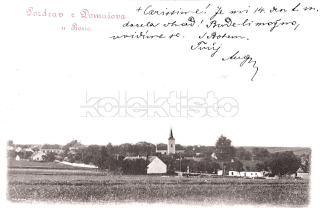 Pozdrav z Domašova
u Brna.
+ Carissime! Je mi 14. den t. m.
docela vhod! Bude-li možno,
uvidíme se. S Bohem.
Tvůj
Aug.
kolektisto